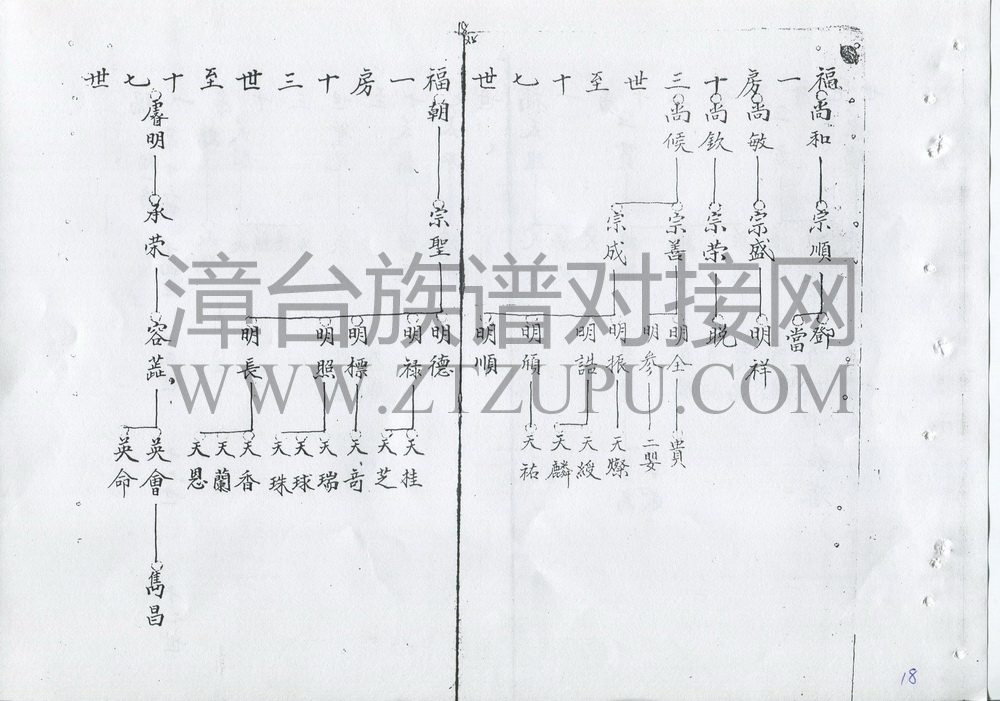 福一房十三世至十七世
尚和
尚敏
尚欽
尚候
宗順
宗盛
宗荣
宗善
宗成
鄧
當
明祥
晚
明全
明參
明振
明誥
明頎
明順
貴
二嬰
天燦
天綬
天麟
天祐
福一房十三世至十七世
朝
睿明
宗聖
承荣
明德
明禄
明標
明照
明長
容蕋
天桂
天芝
天奇
天瑞
天球
天珠
天香
天蘭
天恩
英會
英命
雋昌
漳台族谱对接网
WWW.ZTZUPU.COM
18